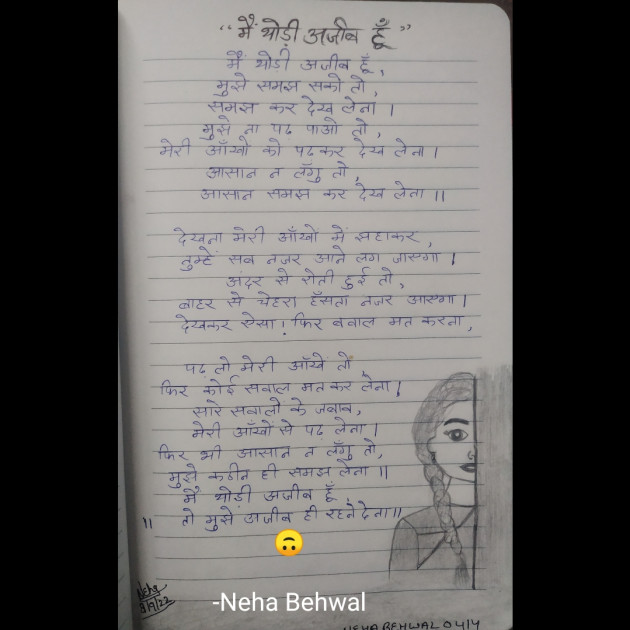 “मैं थोड़ी अजीब हूँ”
मैं थोड़ी अजीब हूँ,
मुझे समझ सको तो,
समझ कर देख लेना।
मुझे ना पढ़ पाओ तो,
मेरी आँखों को पढ़कर देख लेना।
आसान न लगुँ तो,
आसान समझ कर देख लेना॥
देखना मेरी आँखों में झहाकर,
तुम्हें सब नजर आने लग जाएगा।
अंदर से रोती हुई तो,
बाहर से चेहरा हँसता नजर आएगा।
देखकर ऐसा! फिर बवाल मत करना,
पढ़ लो मेरी आँखें तो,
फिर कोई सवाल मत कर लेना।
सारे सवालो के जवाब,
मेरी आँखों से पढ़ लेना।
फिर भी आसान न लगुँ तो,
मुझे कठीन ही समझ लेना॥
मैं थोड़ी अजीब हूँ,
॥ तो मुझे अजीब ही रहने देना॥
Neha
3/9/22
-Neha Behwal
NEHA BEHWAL 04/4